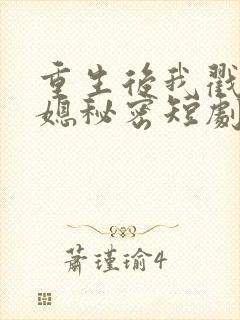 重生後我戳
媳秘密短劇
蕭瑾瑜4